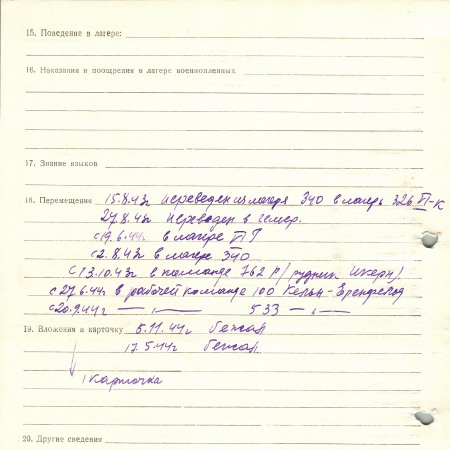 15. Поведение в лагере:
16. Наказания и поощрения в лагере военнопленных
17. Знание языков
18. Перемещения 15.8.43г переведен из лагеря 340 в лагерь 326 VI-К
27.8.43г переведен в Гемер.
с 19.6.44г. в лагере VI
с 2.8.43г в лагере 340
с 13.10.43г в команде 762 Р/рудник Икерн/
с 27.6.44г в рабочей команде 100 Кельн-Еренфельд
с 20.9.44г — „ — 533 — „ —
19. Вложения в карточку 5.11.44г бежал
17.5.44г бежал
1 карточка
20. Другие сведения